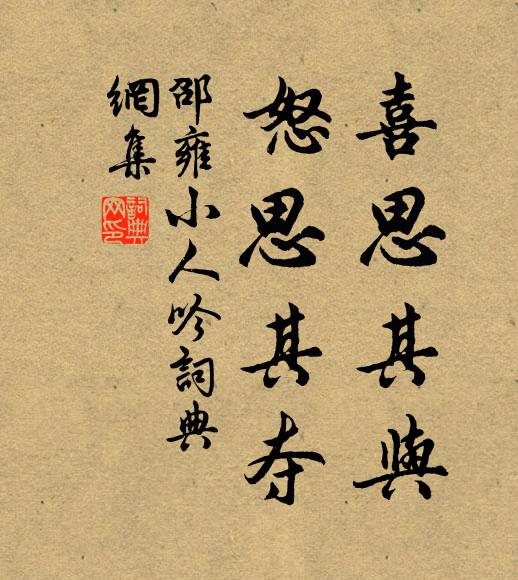 喜思其與
怒思其夺
邵雍小人吟詞典
網集
詞典网印